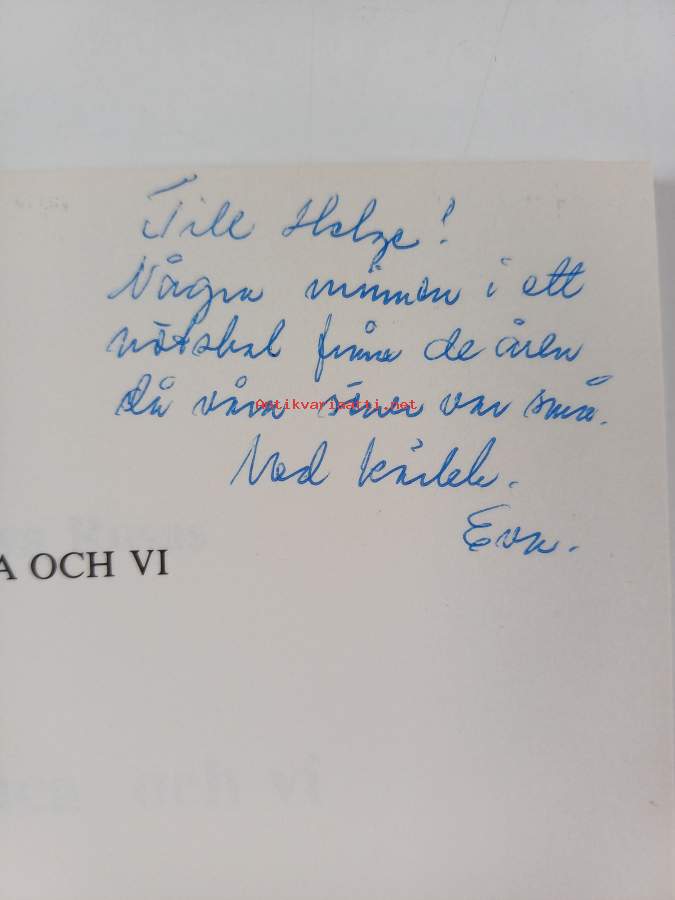 Till Helge!
Några minnen i ett
nötskal från de åren
då våra söner var små.
Med kärlek.
Eva.
Antikvariaatti.net
A OCH VI
och vi